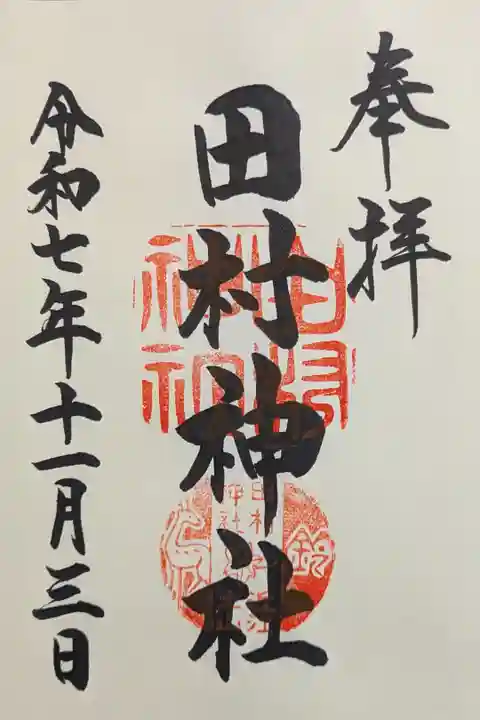 奉拝
田村神社
令和七年十一月三日
田村神社
鈴